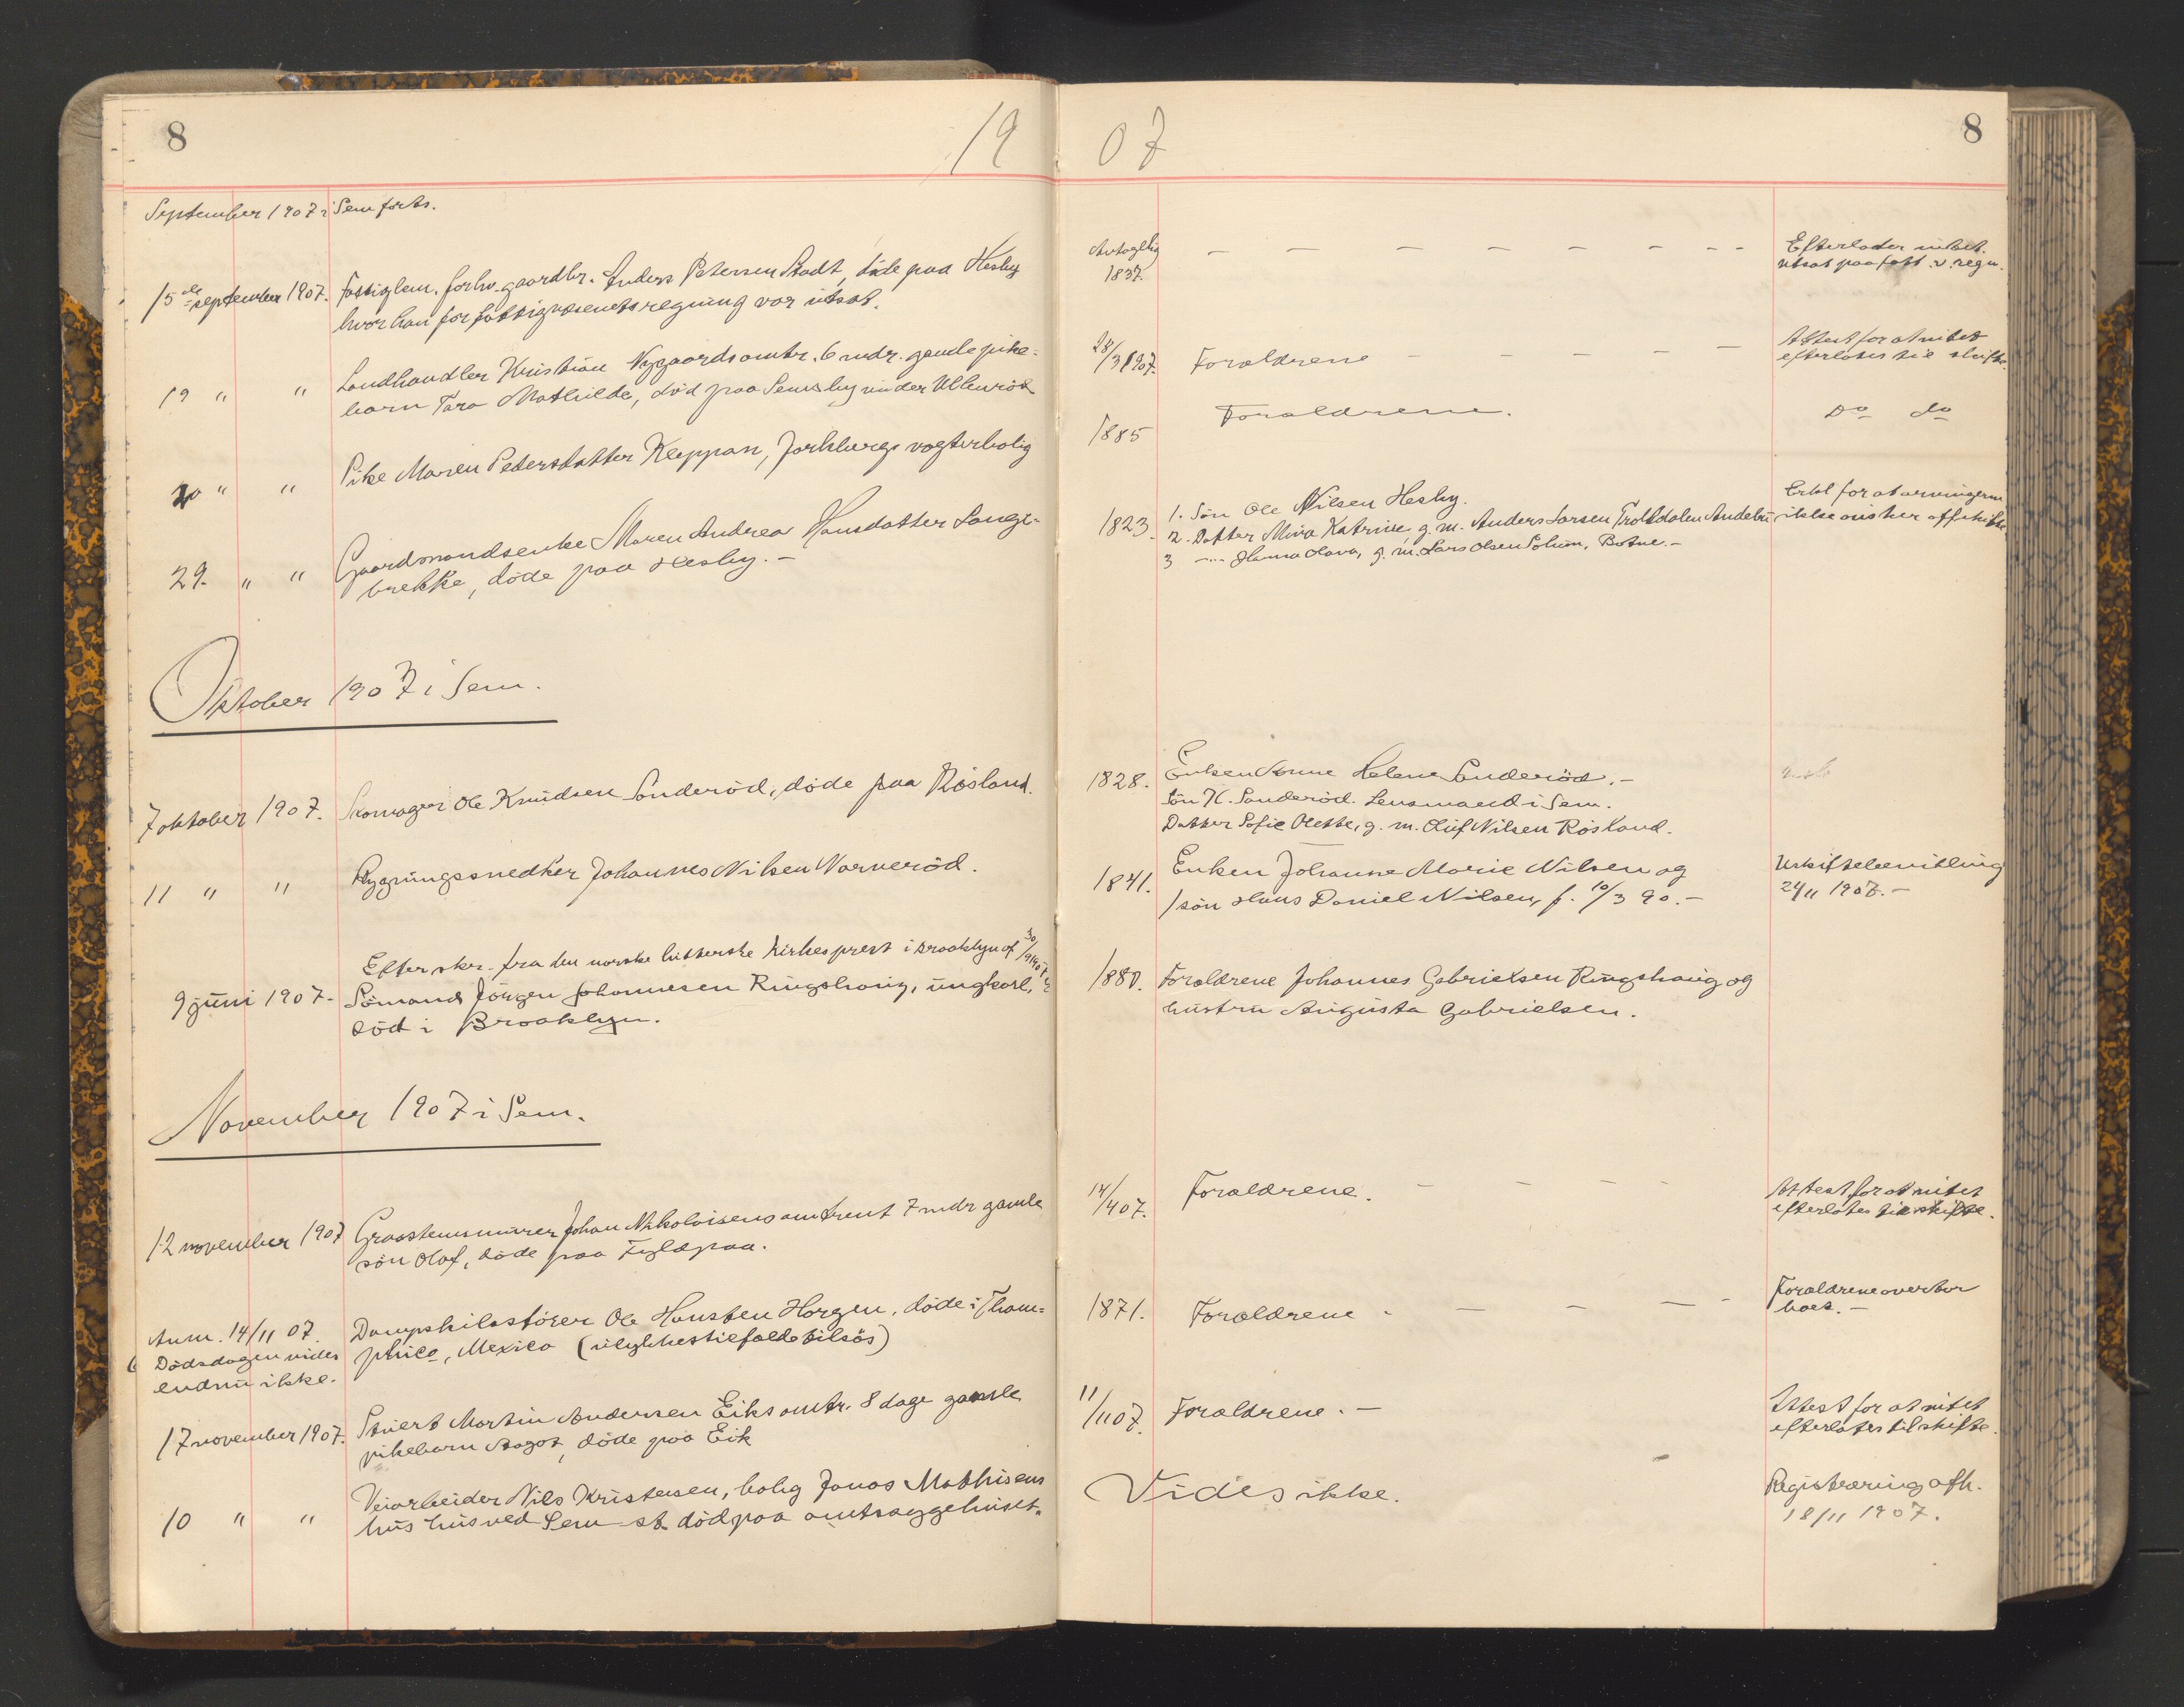 8
19
07
8
September 1907 i Sem forts.
15de september 1907. Fattiglem. forhv. gaardbr. Anders Petersen Stadt, døde paa Hesby
hvor han for fattigvæsenets regning var utsat.
Antagelig
1837.
Efterlader intet.
utsat paa fatt. v. regn.
19 " " Landhandler Kristian Nygaards omtr. 6 mdr. gamle pike-
barn Tara Mathilde, død paa Semsby under Ullenrød
28/3 1907. Forældrene
Attest for at intet
efterlates til skifte.
20 " " Pike Maren Pedersdatter Kleppan, Jarlsbergs vogterbolig
1885 Forældrene.
Do do
29. " " Gaardmandsenke Maren Andrea Hansdatter Lange-
brekke, døde paa Hesby.-
1823. 1. Søn Ole Nilsen Hesby.
2. Datter Mina Katrine g. m. Anders Larsen Trolldalen Andebu
3 -"- Hanna Olava, g. m. Lars Olsen Solum, Botne.-
Erkl for at arvingerne
ikke ønsker off skifte.
Oktober 1907 i Sem.
7 oktober 1907. Skomager Ole Knudsen Sonderød, døde paa Røsland.
1828. Enken Anne Helene Sonderød.-
Søn K. Sonderød. Lensmand i Sem.
Datter Sofie Olette, g. m. Oluf Nilsen Røsland.
11 " " Bygningssnedker Johannes Nilsen Varnerød.
1841. Enken Johanne Marie Nilsen og
1 søn Hans Daniel Nilsen, f. 10/3 90.-
Uskiftebevilling
2/11 1907.-
Efter skr. fra den norske lutherske kirkes prest i Brooklyn af 30/9 1907
9 juni 1907. Sømand Jørgen Johannesen Ringshaug, ungkarl,
død i Brooklyn.
1880. Forældrene Johannes Gabrielsen Ringshaug og
hustru Augusta Gabrielsen.
November 1907 i Sem.
12 november 1907 Graastensmurer Johan Nikolaisens omtrent 7 mdr gamle
søn Olaf, døde paa Fyldpaa.
14/4 07. Forældrene.
Attest for at intet
efterlates til skifte.
Anm. 14/11 07.
Dødsdagen vides
endnu ikke.
Dampskibsfører Ole Hansten Horgen, døde i Tham-
phico, Mexico (ulykkestilfælde tilsøs)
1871. Forældrene
Forældrene overtar
boet.-
17 november 1907. Stuert Martin Andersen Eiks omtr. 8 dage gamle
pikebarn Aagot, døde paa Eik
11/11 07. Forældrene.-
Attest for at intet
efterlates til skifte.
10 " " Veiarbeider Nils Kristensen, bolig Jonas Mathisens
hus ved Sem st. død paa amtssygehuset.
Vides ikke.
Registrering afh.
18/11 1907.